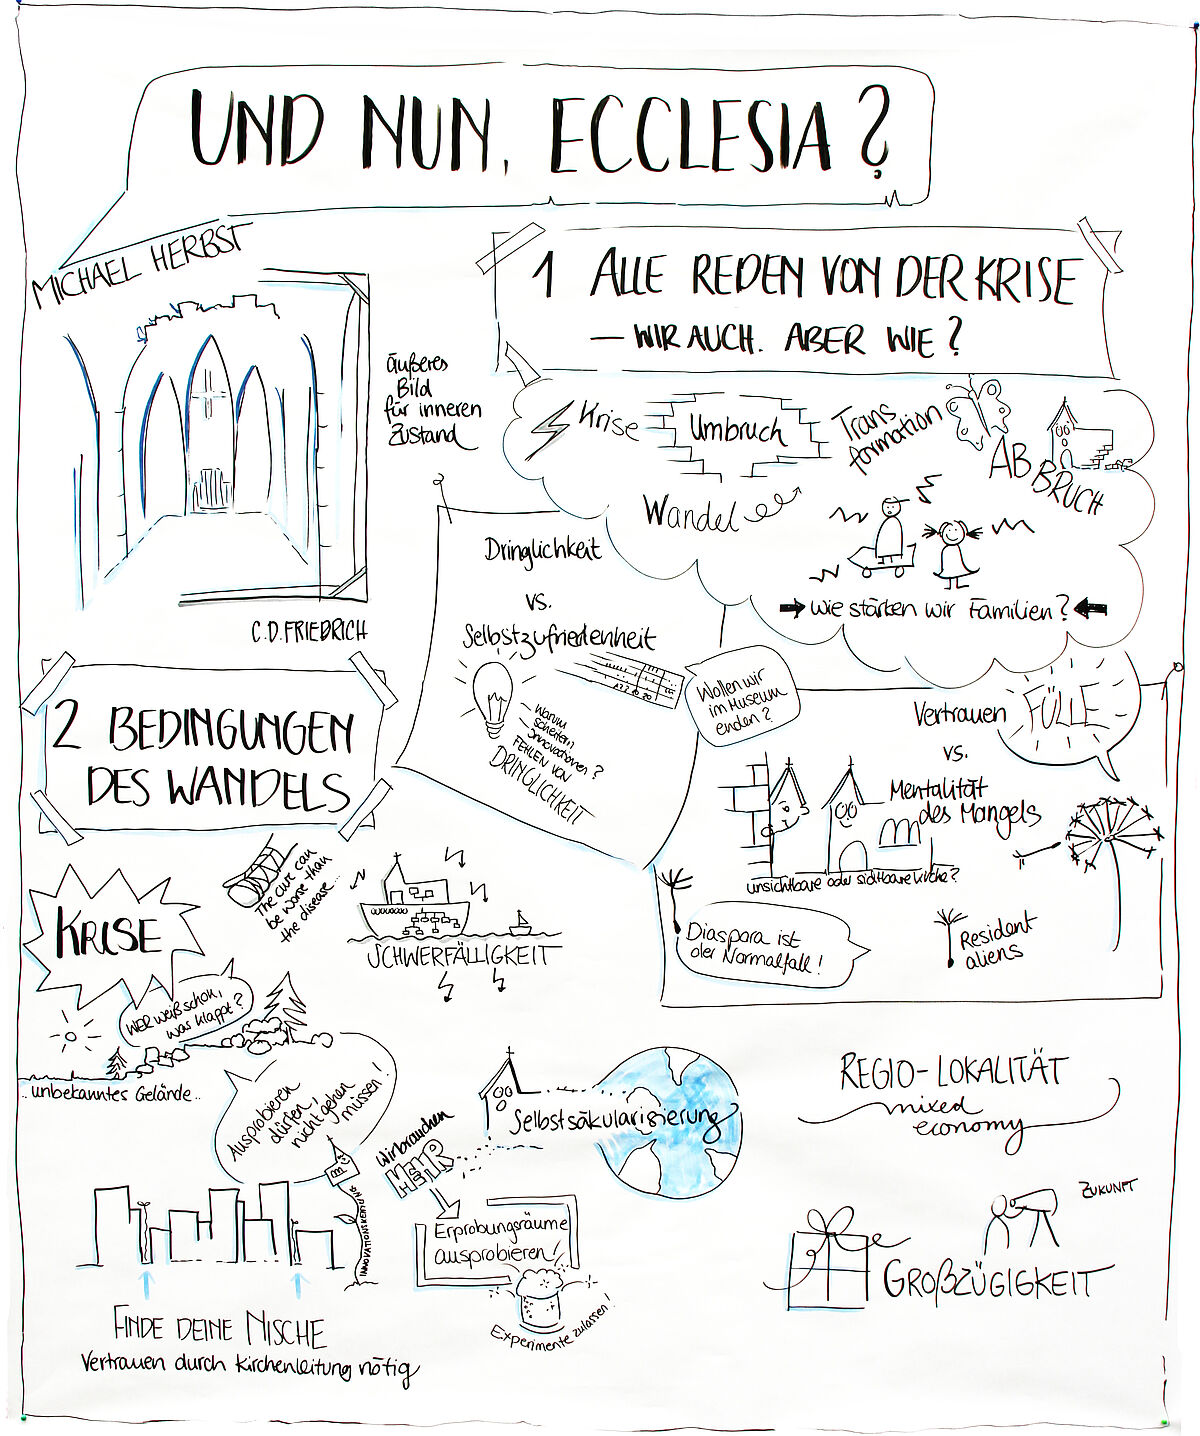 UND NUN, ECCLESIA?
MICHAEL HERBST
äußeres
Bild
für inneren
Zustand
C.D. FRIEDRICH
1 ALLE REDEN VON DER KRISE
– WIR AUCH. ABER WIE?
Krise
Umbruch
Trans
formation
AB
BRUCH
Wandel
wie stärken wir Familien?
Dringlichkeit
vs.
Selbstzufriedenheit
Wollen wir
im Museum
enden?
- Warum
scheitern
Innovationen?
FEHLEN VON
DRINGLICHKEIT
Vertrauen
FÜLLE
vs.
Mentalität
des Mangels
unsichtbare oder sichtbare Kirche?
Diaspara ist
der Normalfall!
Resident
aliens
2 BEDINGUNGEN
DES WANDELS
KRISE
The cure can
be worse than
the disease...
SCHWERFÄLLIGKEIT
WER weiß schon,
was klappt?
..unbekanntes Gelände..
Ausprobieren
dürfen,
nicht gehen
müssen!
INNOVATIONSKERN
Wir brauchen
MEHR
Erprobungsräume
ausprobieren!
Experimente zulassen!
Selbstsäkularisierung
REGIO-LOKALITÄT
mixed
economy
ZUKUNFT
GROßZÜGIGKEIT
FINDE DEINE NISCHE
Vertrauen durch Kirchenleitung nötig